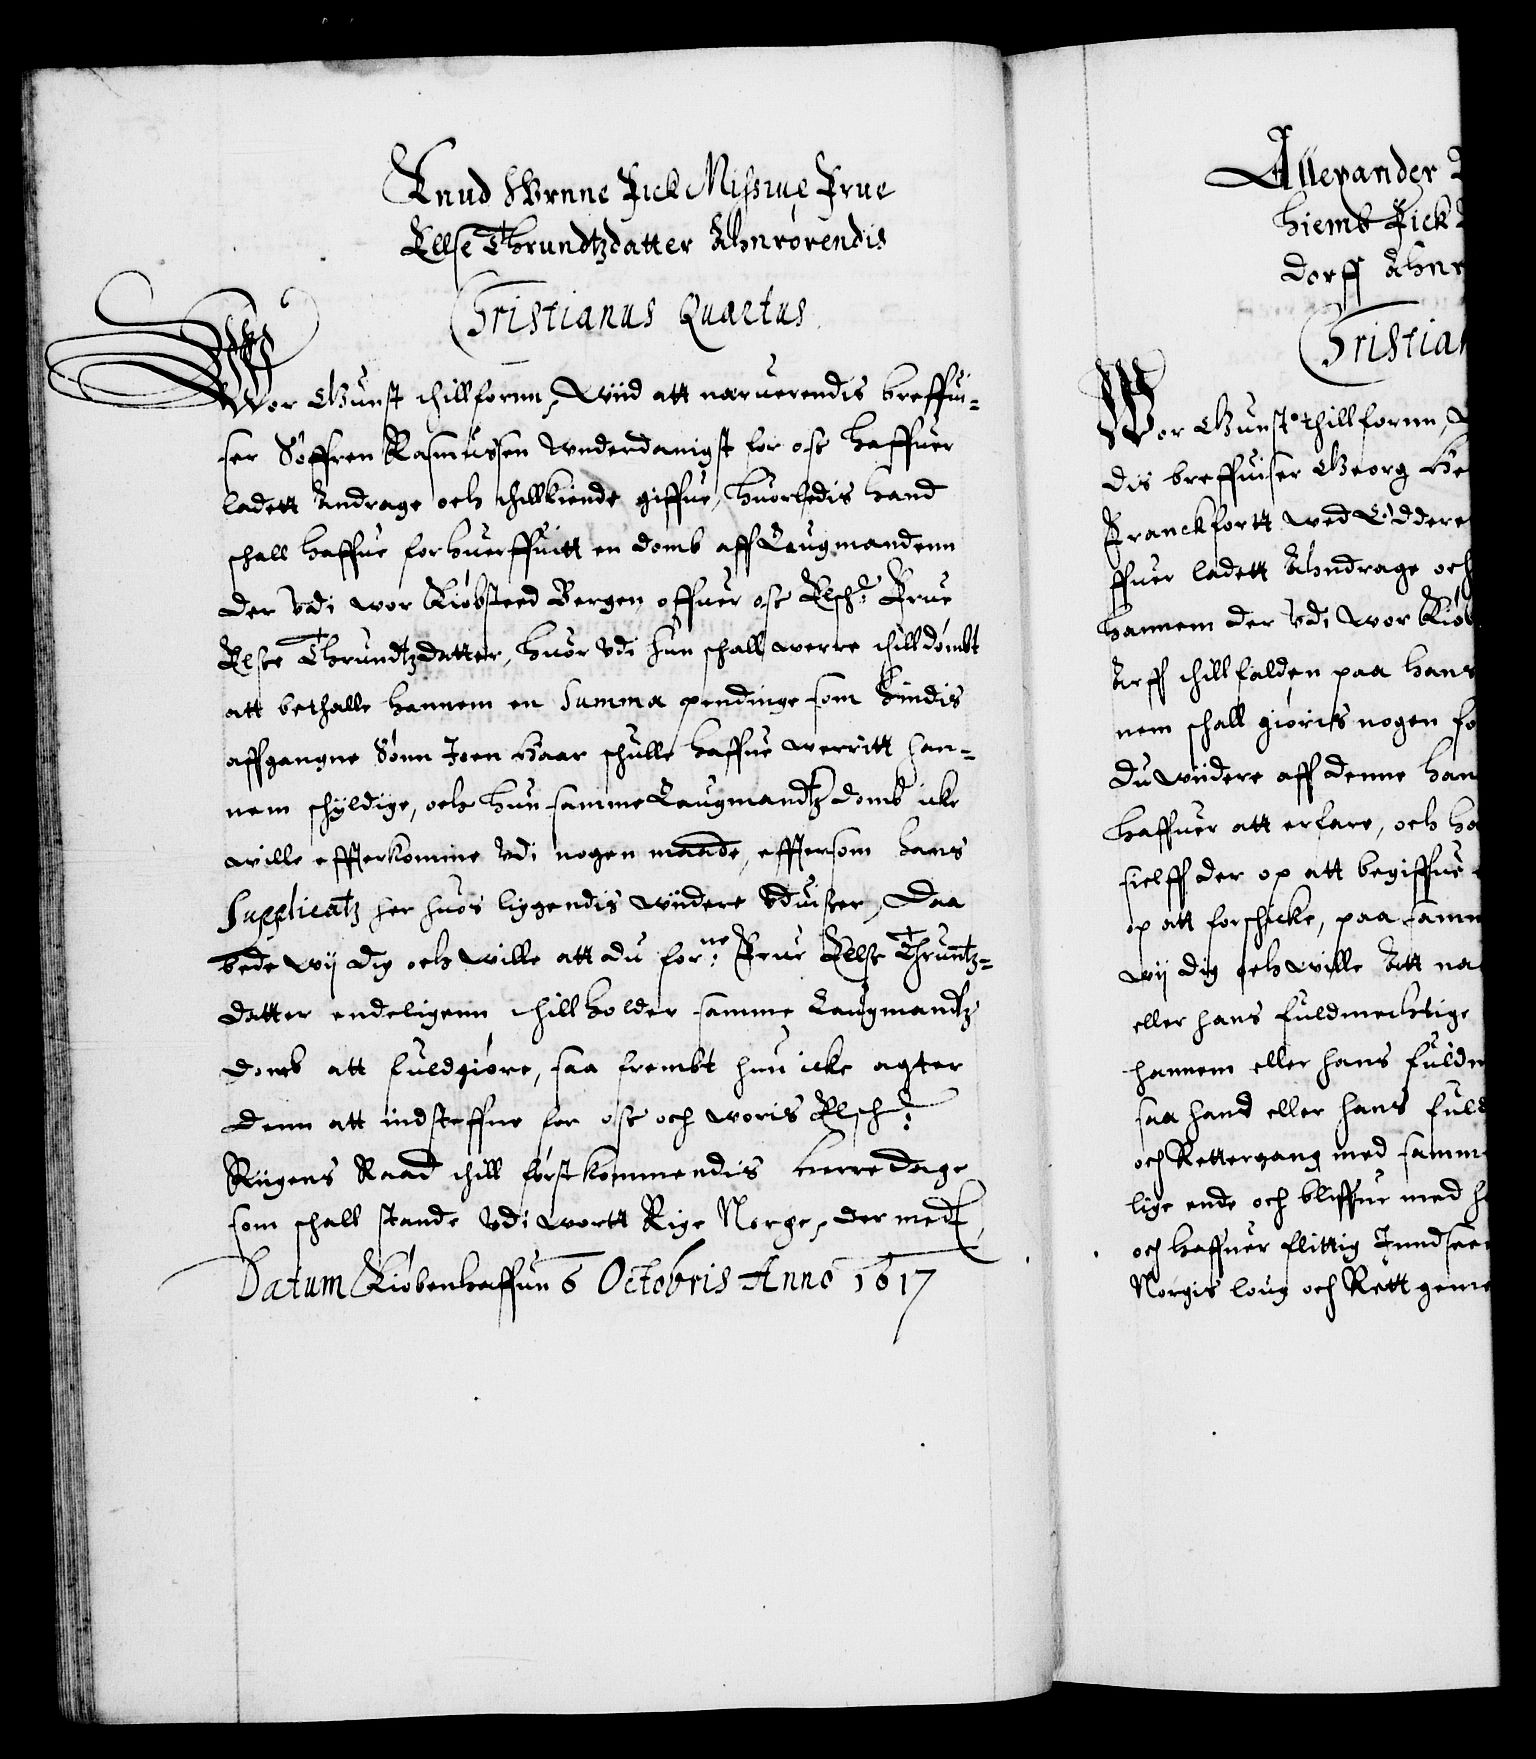 Knud Vrnne Fick Missiue Frue
Ellse Thrundtzdatter Ahnrörendis
Christianus Quartus
Wor Gunst thillfornn, Wiid att neruerendis breffui-
ser Söffren Rasmussen Vnderdanigst for oss haffuer
ladett Andrage och thillkiende giffue, huorledis hand
schall haffue forhuerffuitt en domb aff Laugmandenn
der Vdi wor Kiöbsteed Bergen offuer oss Elsch: Frue
Elsse Thrundtzdatter, huor Vdi hun schall werre thilldömbt
att bethalle hannem en Summa pendinge som hindis
affgangne Sönn Joen Haar schulle haffue werritt han-
nem schyldige, och hun samme Laugmandtz domb icke
wille effterkomme Vdi nogen maade, effttersom hans
Supplicatz her huos liggendis Wiidere Vduiszer, Daa
bede wij dig och wille att du forne: Frue Ellse Thruntz-
datter endeligenn thillholder samme Laugmandtz
domb att fuldgiöre, saa frembt hun icke agter
denn att indsteffne for oss och woris Elsch:
Riigens Raad thill förstkommendis herredage
som schall stande Vdi wortt Rige Norge, der med
Datum Kiöbenhaffun 6 Octobris Anno 1617
Allexander
hiemb Fick
dorff Ahnr
Christian
Wor Gunst thillfornn,
dis breffuiser Georg He
Franckfortt wed Oddere
ffuer ladett Ahndrage och
hannem der Vdi wor Kiöb
Arff thillfalden paa hans
nem schall giöris nogen fo
du wiidere aff denne han
haffuer att erfare, och ha
sielff der op att begiffue
op att forschicke, paa samm
wij dig och wille Att na
eller hans fuldmechtige
hannem eller hans fuldm
saa hand eller hans fuld
och Rettergang med samme
lige ende och bliffue med h
och haffuer flittig Inndseen
Norgis loug och Rett geme